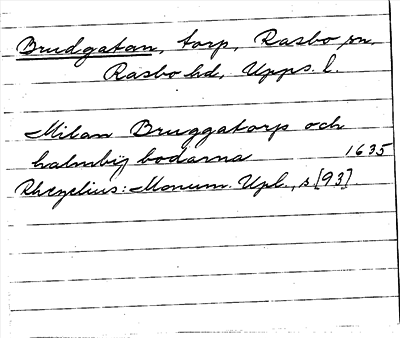 Brudgatan, torp, Rasbo sn,
Rasbo hd, Upps. l.
Milan Bruggatorp och
halmbij bodarna 1635
Rhezelius: Monum. Upl., s [93].